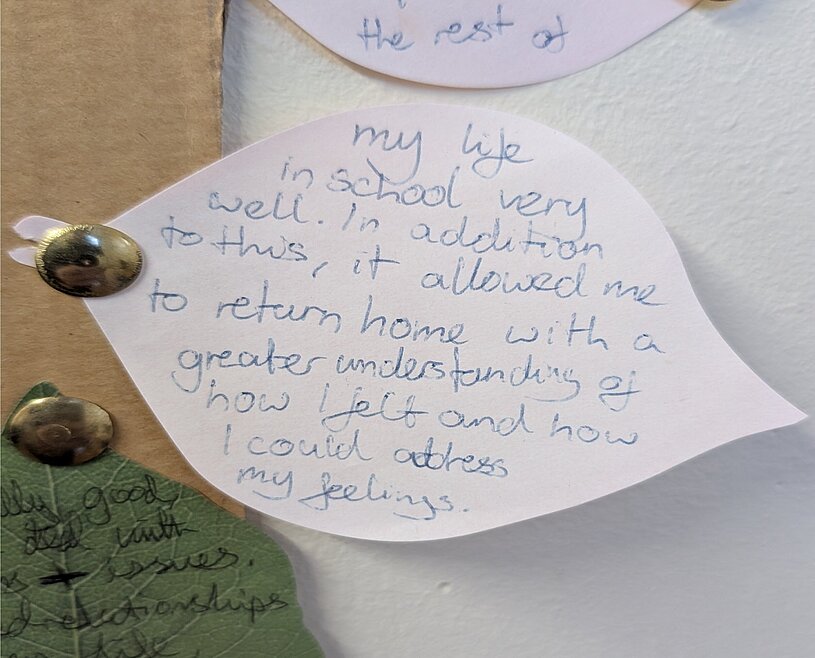 the rest of
my life
in school very
well. In addition
to this, it allowed me
to return home with a
greater understanding of
how I felt and how
I could address
my feelings.
good
with
issues.